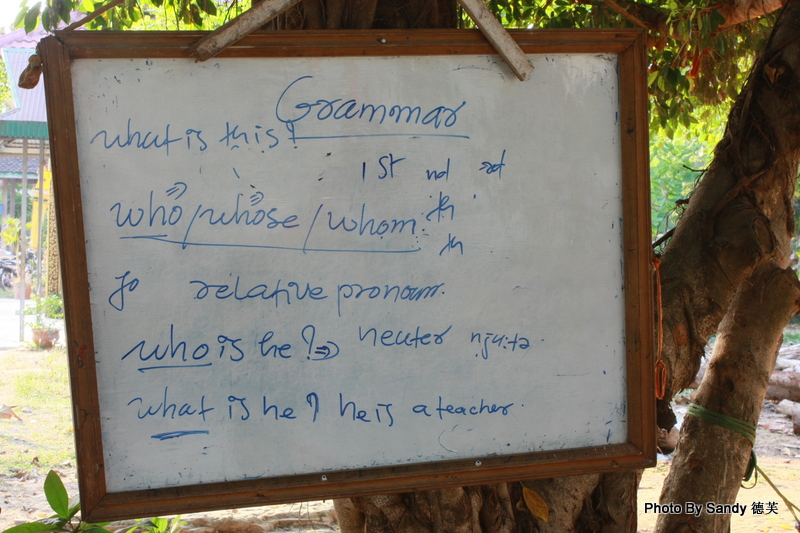 Grammar
what is this?
1 st nd rd
who/whose/whom th
th
relative pronoun.
who is he? ⇒ neuter
what is he? he is a teacher.
Photo By Sandy 德芙